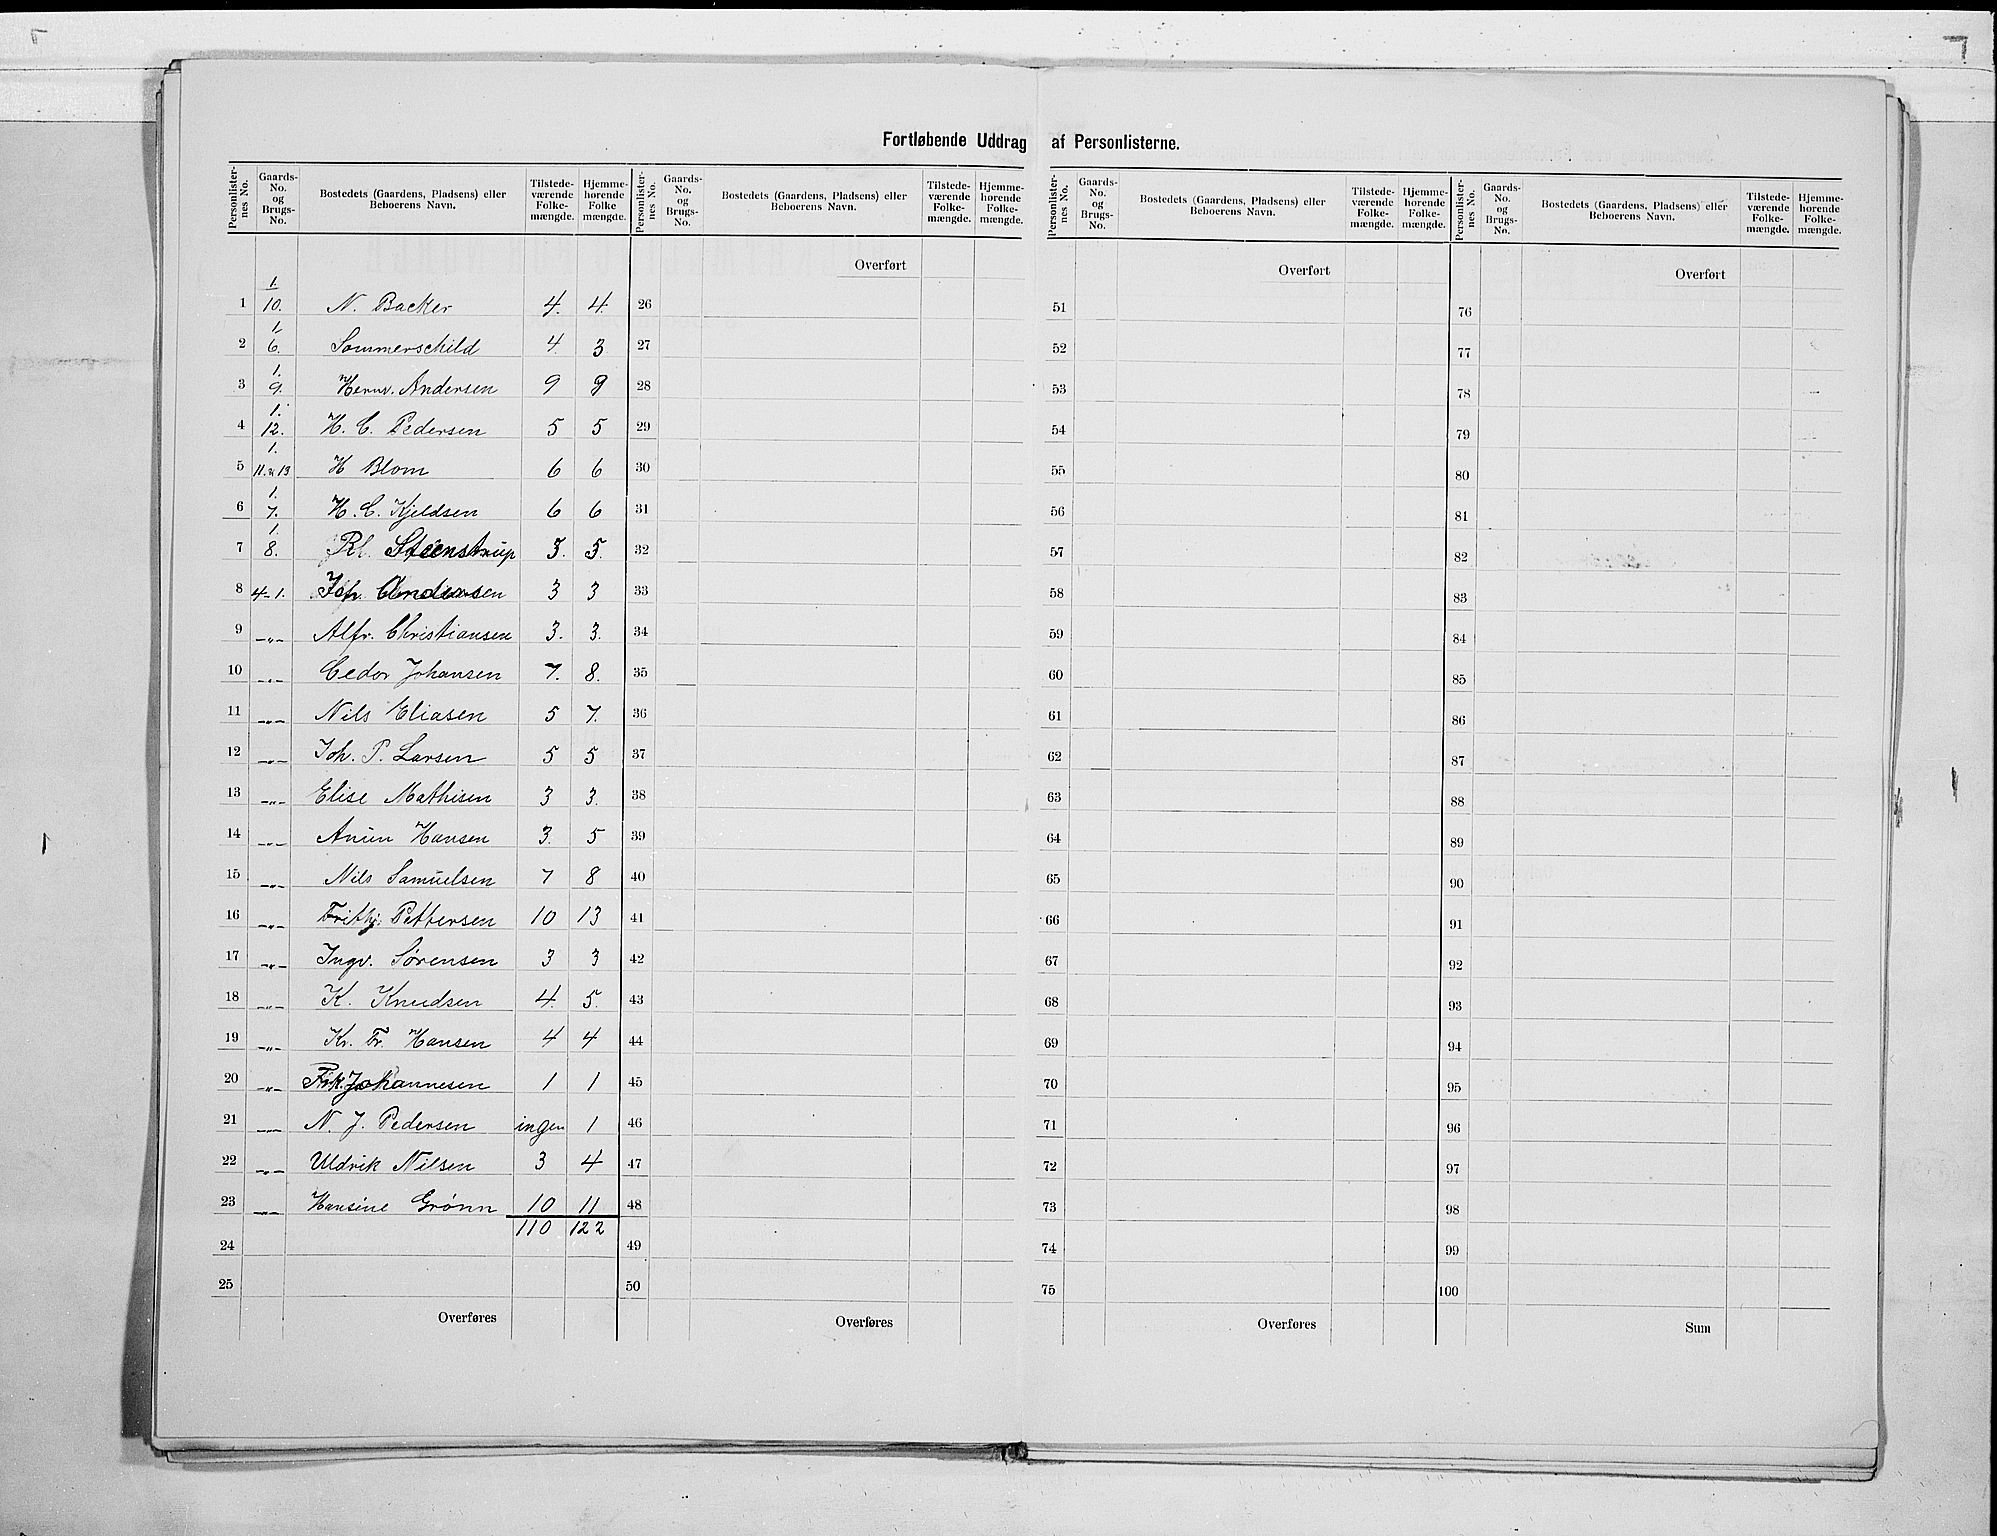 Fortløbende Uddrag af Personlisterne.
Personlister-nes No. Gaards-No. og Brugs-No. Bostedets (Gaardens, Pladsens) eller Beboerens Navn. Tilstede-værende Folke-mængde. Hjemme-hørende Folke-mængde.
Personlister-nes No. Gaards-No. og Brugs-No. Bostedets (Gaardens, Pladsens) eller Beboerens Navn. Tilstede-værende Folke-mængde. Hjemme-hørende Folke-mængde.
Personlister-nes No. Gaards-No. og Brugs-No. Bostedets (Gaardens, Pladsens) eller Beboerens Navn. Tilstede-værende Folke-mængde. Hjemme-hørende Folke-mængde.
Personlister-nes No. Gaards-No. og Brugs-No. Bostedets (Gaardens, Pladsens) eller Beboerens Navn. Tilstede-værende Folke-mængde. Hjemme-hørende Folke-mængde.
Overført Overført Overført
1 1. 10. N. Backer 4. 4. 26 51 76
2 1. 6. Sommerschild 4. 3 27 52 77
3 1. 9. Herm. Andersen 9 9 28 53 78
4 1. 12. H. C. Pedersen 5 5 29 54 79
5 1. 11. & 13 H Blom 6 6 30 55 80
6 1. 7. H. C. Kjeldsen 6 6 31 56 81
7 1. 8. Steenstrup 3. 5. 32 57 82
8 4-1. Joh. Andersen 3 3 33 58 83
9 -"- Alfr. Christiansen 3. 3. 34 59 84
10 -"- Johansen 7. 8. 35 60 85
11 -"- Nils Eliasen 5 7. 36 61 86
12 -"- Joh. P. Larsen 5 5 37 62 87
13 -"- Elise Mathisen 3 3. 38 63 88
14 -"- Hansen 3. 5 39 64 89
15 -"- Nils Samuelsen 7 8 40 65 90
16 -"- Frithj. Pettersen 10 13 41 66 91
17 -"- Ingv. Sørensen 3 3 42 67 92
18 -"- K. Knudsen 4. 5. 43 68 93
19 -"- Kr. Fr. Hansen 4 4 44 69 94
20 -"- Johannesen 1 1 45 70 95
21 -"- N. J. Pedersen ingen 1 46 71 96
22 -"- Uldrik Nilsen 3 4 47 72 97
23 -"- Hansine Grønn 10 11 48 73 98
110 122
24 49 74 99
25 50 75 100
Overføres Overføres Overføres Sum